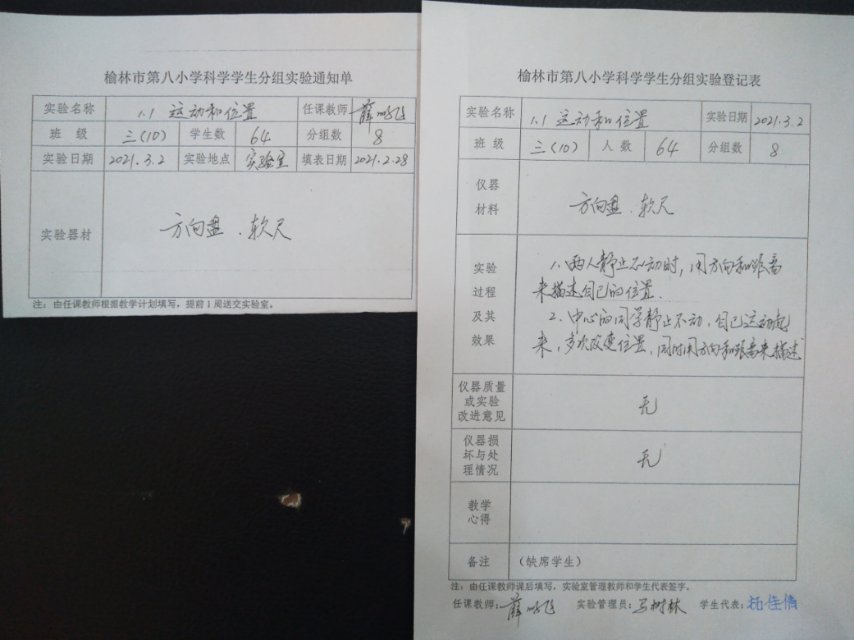 榆林市第八小学科学学生分组实验通知单
实验名称 1.1 运动和位置 任课教师 薛
班 级 三(10) 学生数 64 分组数 8
实验日期 2021.3.2 实验地点 实验室 填表日期 2021.2.28
实验器材 方向盘.软尺
注：由任课教师根据教学计划填写，提前1周送交实验室。
榆林市第八小学科学学生分组实验登记表
实验名称 1.1 运动和位置 实验日期 2021.3.2
班 级 三(10) 人 数 64 分组数 8
仪器
材料
方向盘.软尺
实验
过程
及其
效果
1、两人静止不动时,用方向和距离
来描述自己的位置.
2、中心的同学静止不动,自己运动起
来,多次改变位置,同时用方向和距离来描述
仪器质量
或实验
改进意见
无
仪器损
坏与处
理情况
无
教学
心得
备注 （缺席学生）
注：由任课教师课后填写，实验室管理教师和学生代表签字。
任课教师: 薛 实验管理员: 马树林 学生代表: 佳倩